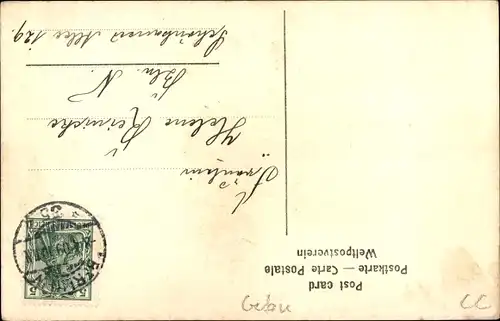 Post card
Postkarte — Carte Postale
Weltpostverein
Fräulein
Helene Reinicke
Bln. N.
Schönhauser Allee 129.
BERLIN
5
CC